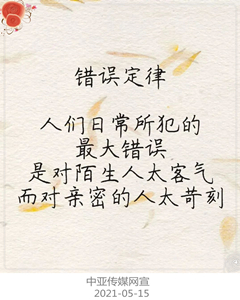 错误定律
人们日常所犯的
最大错误
是对陌生人太客气
而对亲密的人太苛刻
中亚传媒网宣
2021-05-15